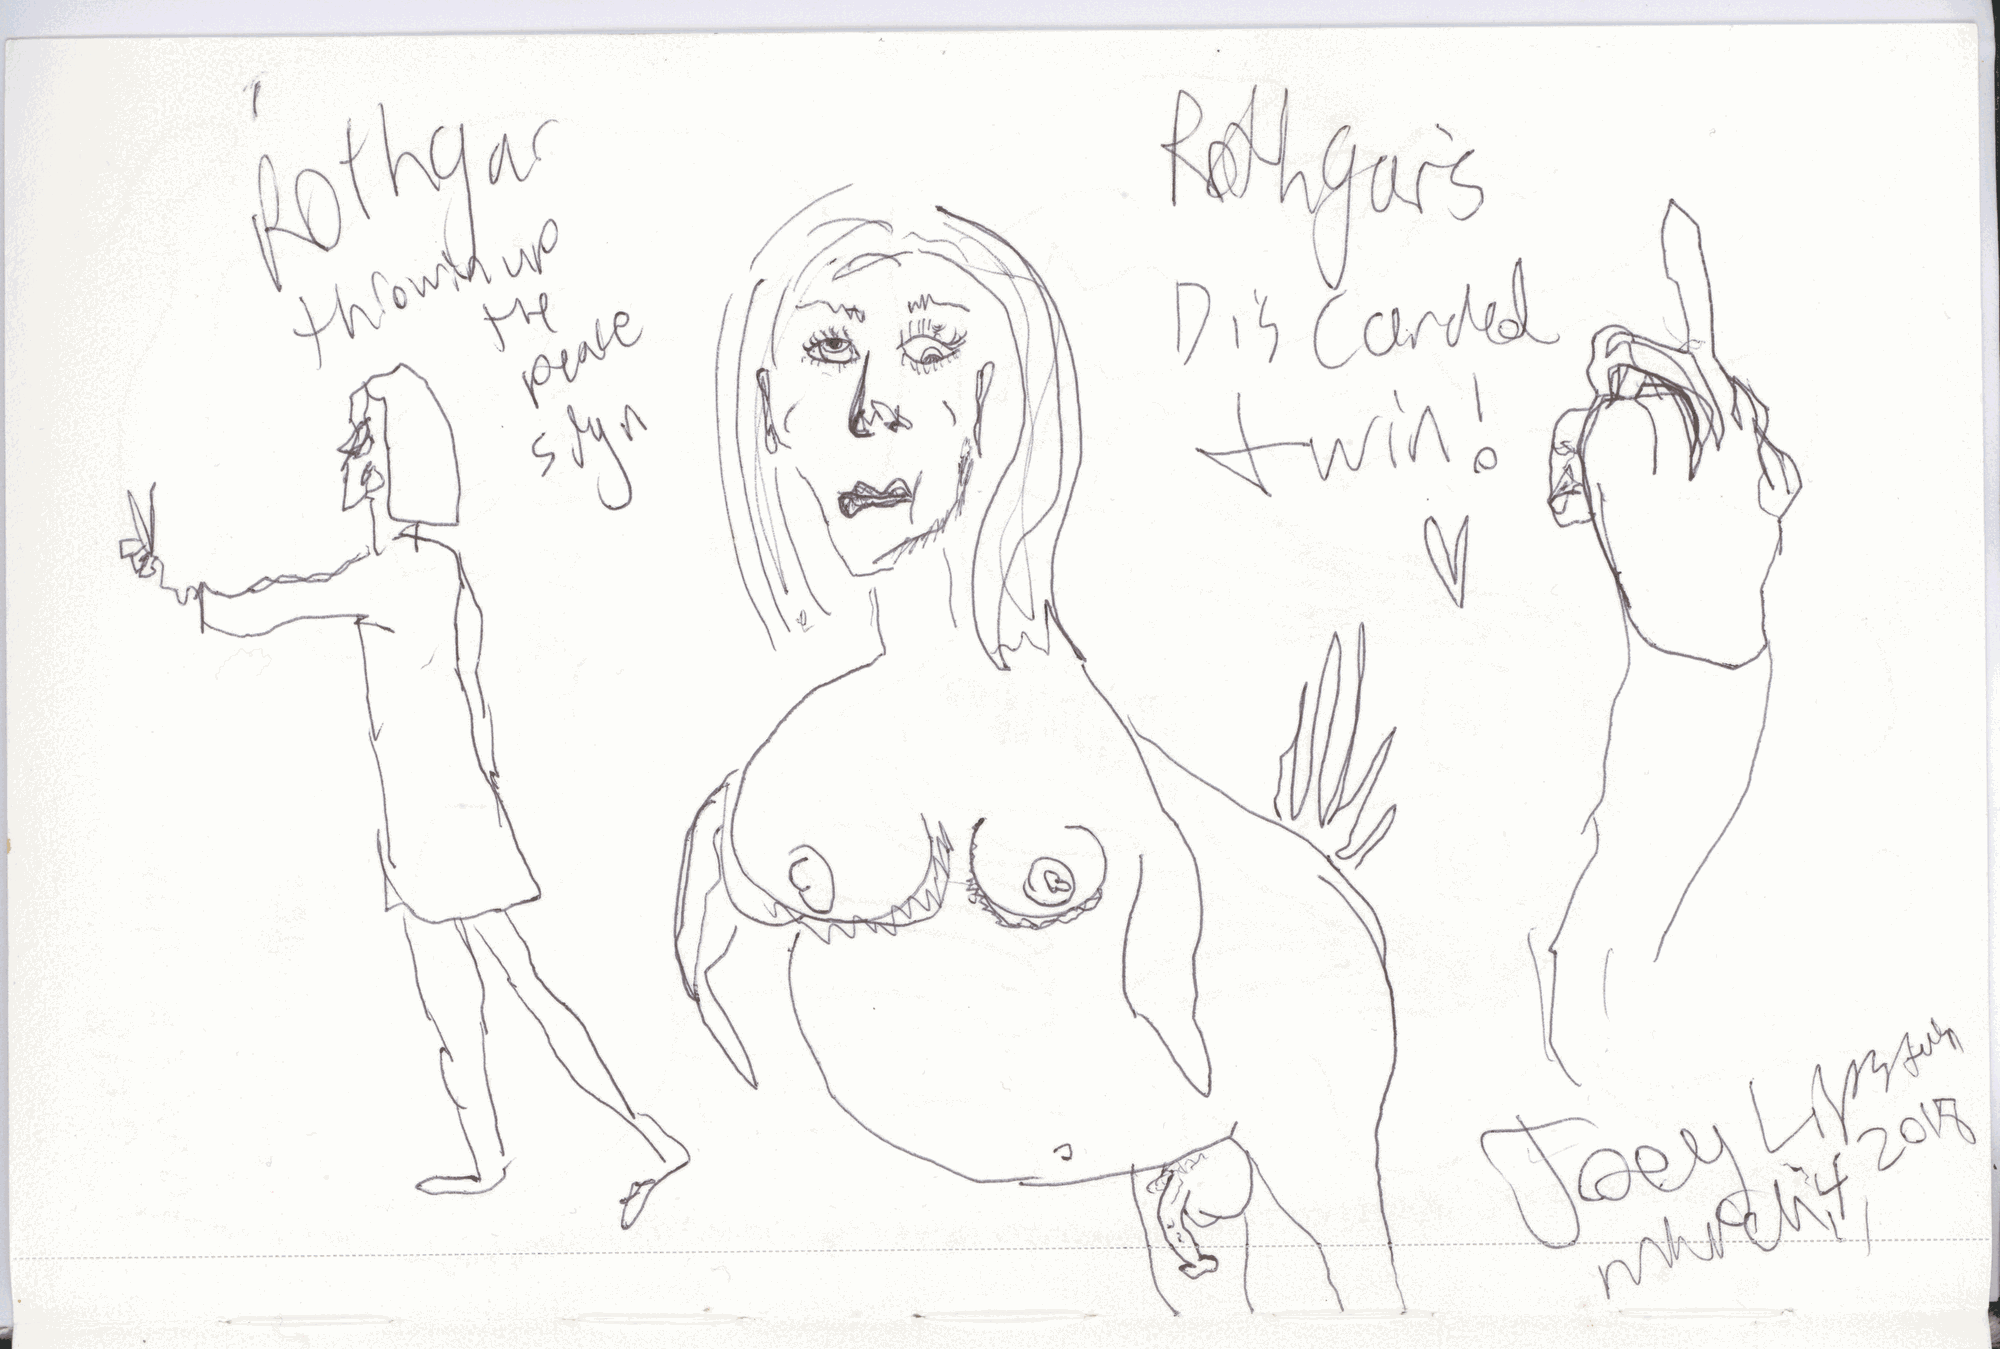 Rothgar
throwin up
the
peace
sign
Rothgar's
Discarded
twin!
Joey Lipstein
March 14, 2018